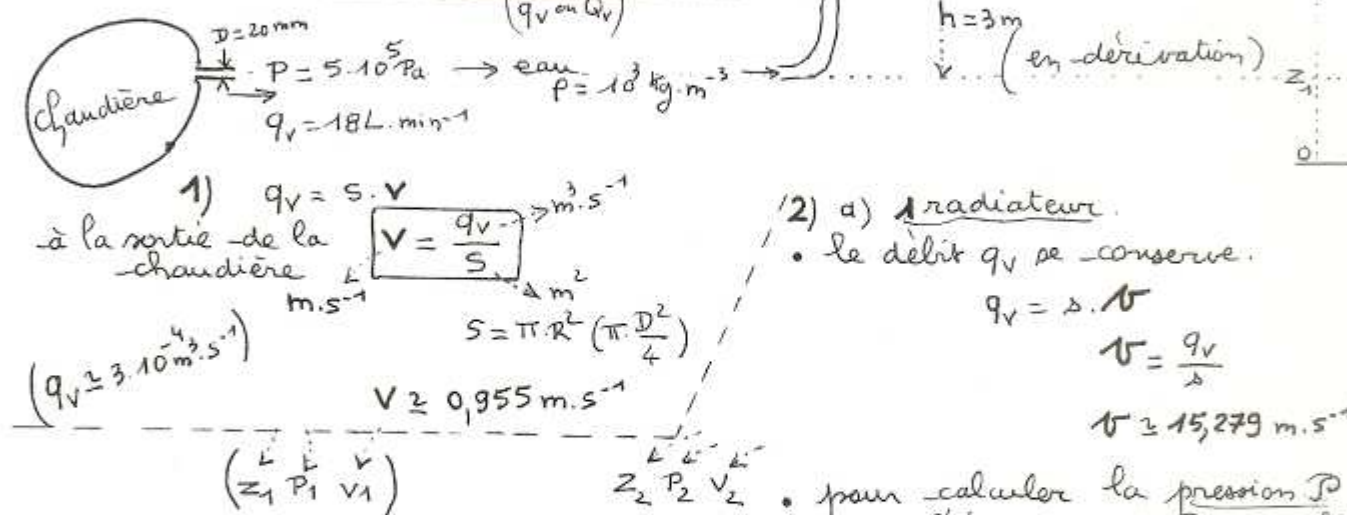 (qv ou Qv)
D=20mm
chaudière
P = 5.10⁵ Pa → eau ρ = 10³ kg.m⁻³ →
qv = 18L.min⁻¹
h=3m
(en dérivation)
Z₁
O
1) qv = S.V
à la sortie de la
chaudière
V = qv / S
m³.s⁻¹
m.s⁻¹
m²
S = π.R² (π.D²/4)
(qv ≃ 3.10⁻⁴ m³.s⁻¹)
V ≃ 0,955 m.s⁻¹
(Z₁ P₁ V₁)
Z₂ P₂ V₂
2) a) 1 radiateur.
• le débit qv se conserve.
qv = s.v
v = qv / s
v ≃ 15,279 m.s⁻¹
• pour calculer la pression P